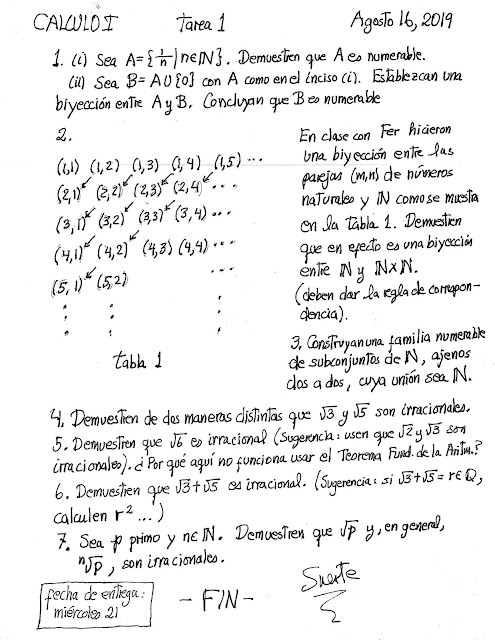 CALCULO I Tarea 1 Agosto 16, 2019
1. (i) Sea A={1/n | n∈IN}. Demuestren que A es numerable.
(ii) Sea B = A∪{0} con A como en el inciso (i). Establezcan una
biyección entre A y B. Concluyan que B es numerable
2.
(1,1) (1,2) (1,3) (1,4) (1,5) ...
(2,1) (2,2) (2,3) (2,4) ...
(3,1) (3,2) (3,3) (3,4) ...
(4,1) (4,2) (4,3) (4,4) ...
(5,1) (5,2) ...
tabla 1
En clase con Fer hicieron
una biyección entre las
parejas (m,n) de números
naturales y IN como se muestra
en la tabla 1. Demuestren
que en efecto es una biyección
entre IN y IN×IN.
(deben dar la regla de correspon-
dencia).
3. Construyan una familia numerable
de subconjuntos de IN, ajenos
dos a dos, cuya unión sea IN.
4. Demuestren de dos maneras distintas que √3 y √5 son irracionales.
5. Demuestren que √6 es irracional (Sugerencia: usen que √2 y √3 son
irracionales). ¿Por qué aquí no funciona usar el Teorema Fund. de la Aritm.?
6. Demuestren que √3+√5 es irracional. (Sugerencia: si √3+√5 = r∈Q,
calculen r² ...)
7. Sea p primo y n∈IN. Demuestren que √p y, en general,
ⁿ√p, son irracionales.
fecha de entrega:
miércoles 21
- FIN -
Suerte